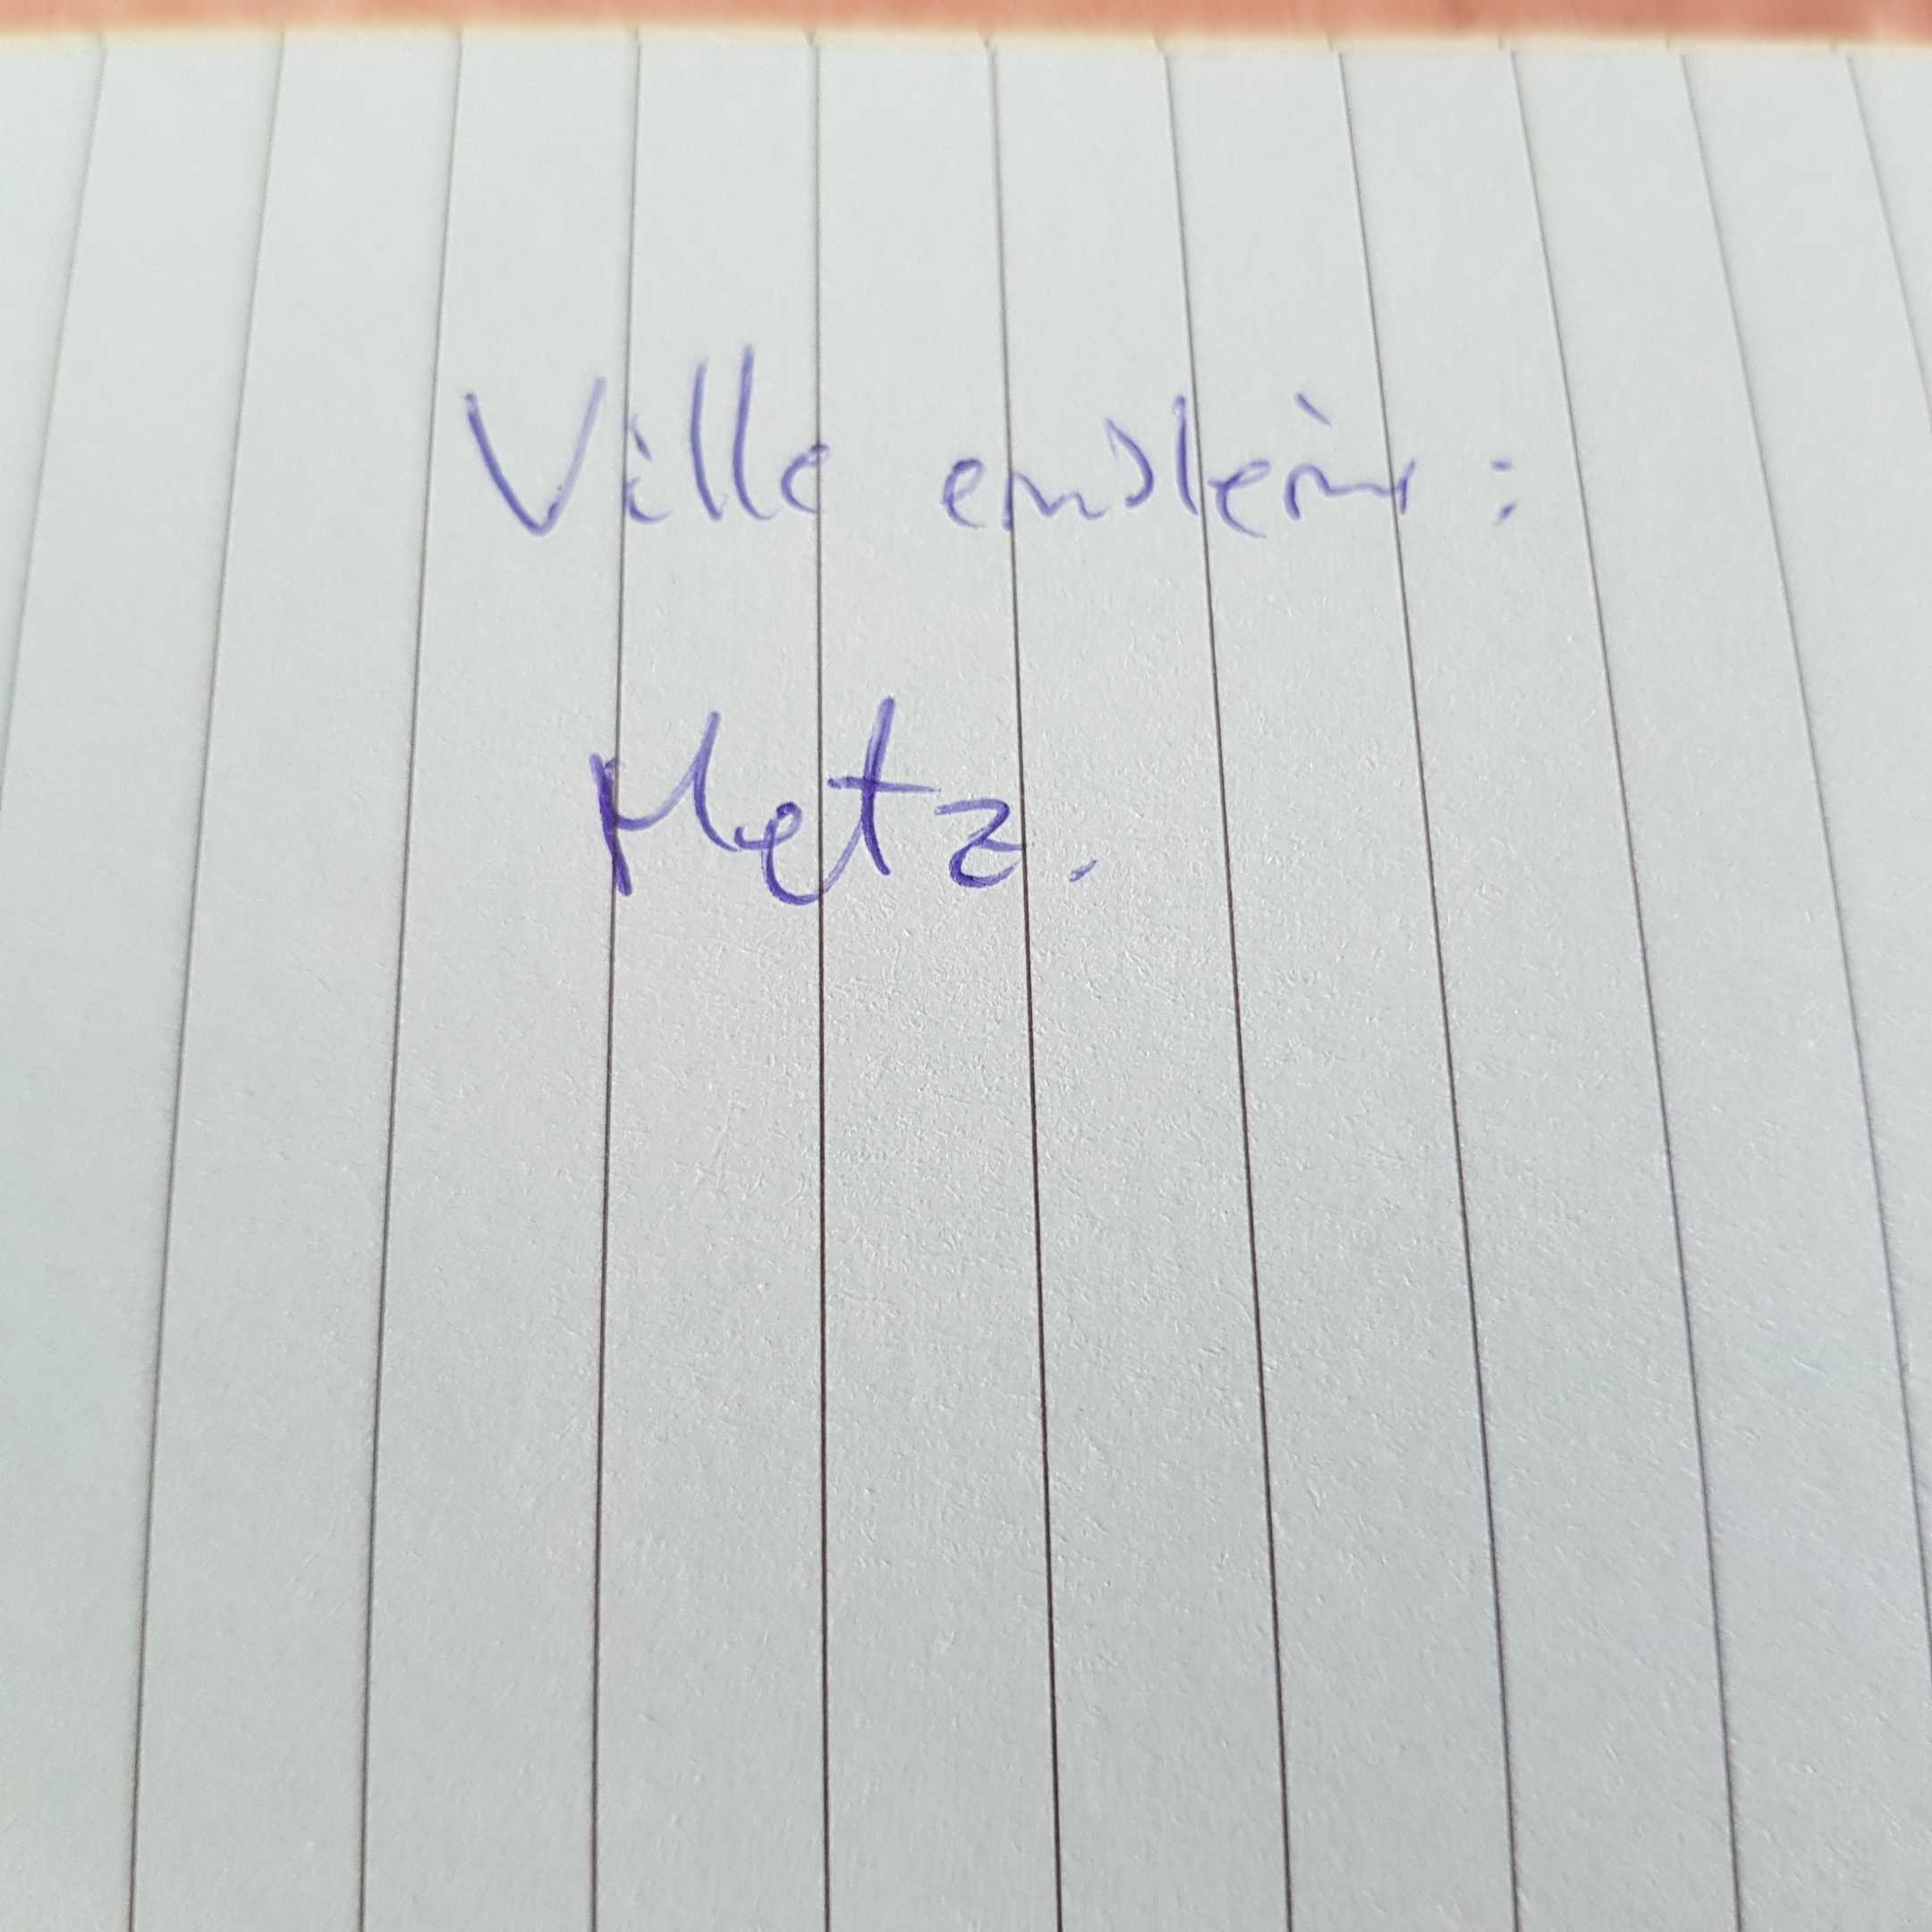 Ville emblème :
Metz.